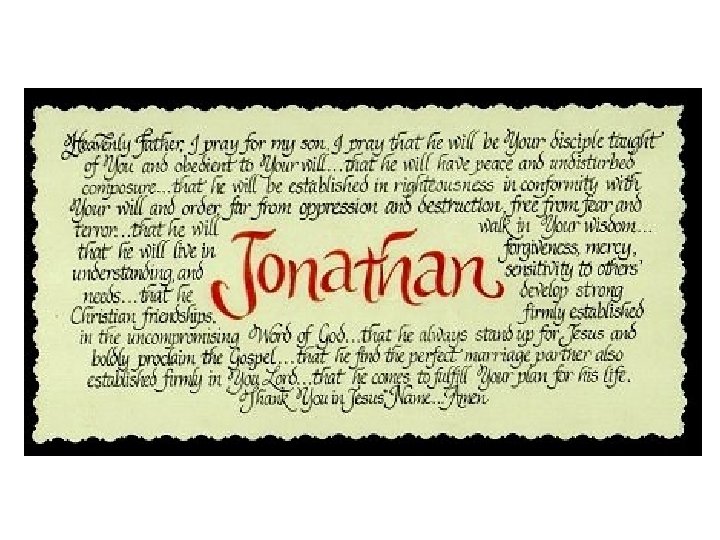 Heavenly Father, I pray for my son. I pray that he will be Your disciple taught
of You and obedient to Your will...that he will have peace and undisturbed
composure...that he will be established in righteousness in conformity with
Your will and order, far from oppression and destruction, free from fear and
terror...that he will walk in Your wisdom...
that he will live in forgiveness, mercy,
understanding, and sensitivity to others'
needs...that he develop strong
Christian friendships, firmly established
Jonathan
in the uncompromising Word of God...that he always stand up for Jesus and
boldly proclaim the Gospel....that he find the perfect marriage partner also
established firmly in You, Lord...that he comes to fulfill Your plan for his life.
Thank You in Jesus' Name...Amen